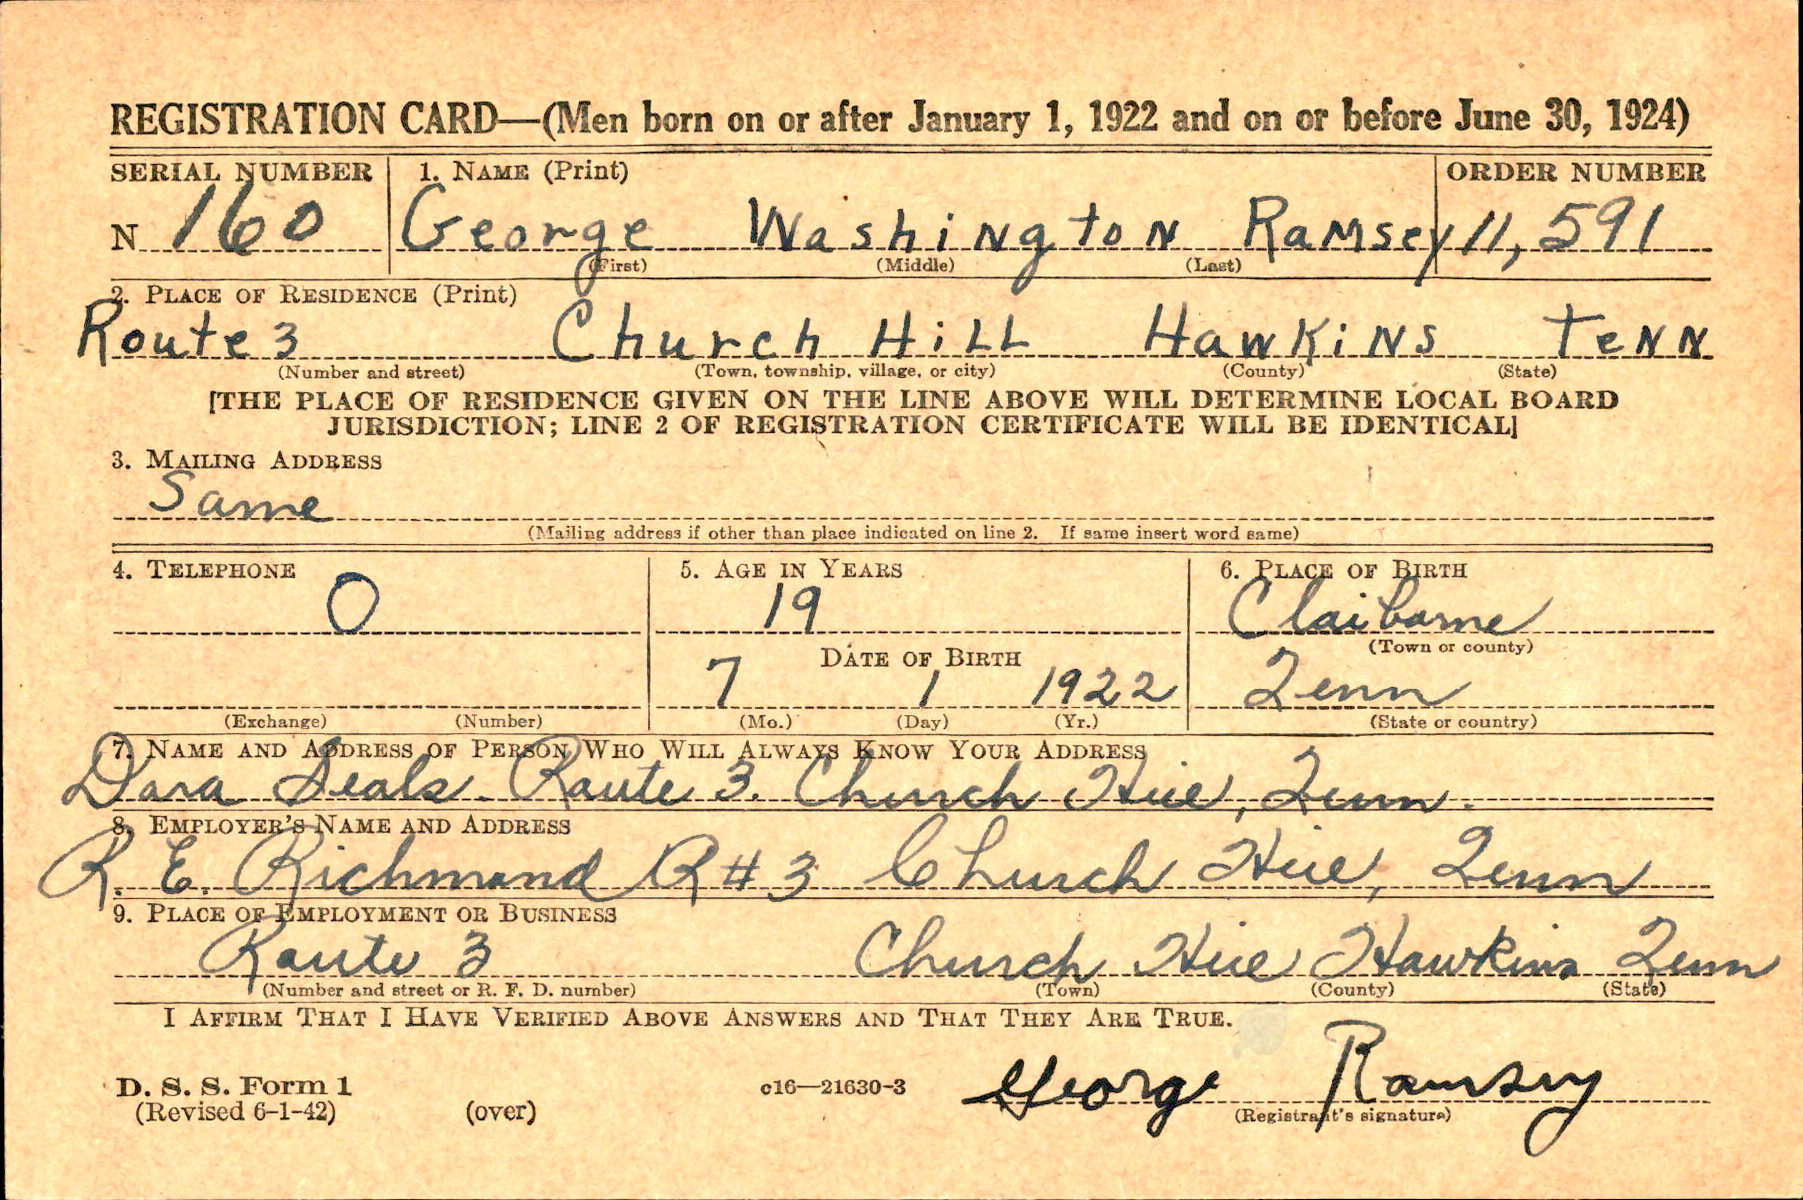 REGISTRATION CARD—(Men born on or after January 1, 1922 and on or before June 30, 1924)
SERIAL NUMBER 1. NAME (Print) ORDER NUMBER
N 160 George Washington Ramsey 11,591
(First) (Middle) (Last)
2. PLACE OF RESIDENCE (Print)
Route 3 Church Hill Hawkins Tenn
(Number and street) (Town, township, village, or city) (County) (State)
[THE PLACE OF RESIDENCE GIVEN ON THE LINE ABOVE WILL DETERMINE LOCAL BOARD
JURISDICTION; LINE 2 OF REGISTRATION CERTIFICATE WILL BE IDENTICAL]
3. MAILING ADDRESS
Same
(Mailing address if other than place indicated on line 2. If same insert word same)
4. TELEPHONE 5. AGE IN YEARS 6. PLACE OF BIRTH
0 19 Claiborne
(Town or county)
DATE OF BIRTH
7 1 1922 Tenn
(Exchange) (Number) (Mo.) (Day) (Yr.) (State or country)
7. NAME AND ADDRESS OF PERSON WHO WILL ALWAYS KNOW YOUR ADDRESS
Dora Seals. Route 3. Church Hill, Tenn.
8. EMPLOYER'S NAME AND ADDRESS
R. E. Richmond R#3 Church Hill, Tenn
9. PLACE OF EMPLOYMENT OR BUSINESS
Route 3 Church Hill Hawkins Tenn
(Number and street or R. F. D. number) (Town) (County) (State)
I AFFIRM THAT I HAVE VERIFIED ABOVE ANSWERS AND THAT THEY ARE TRUE.
D. S. S. Form 1 c16—21630-3 George Ramsey
(Revised 6-1-42) (over) (Registrant's signature)